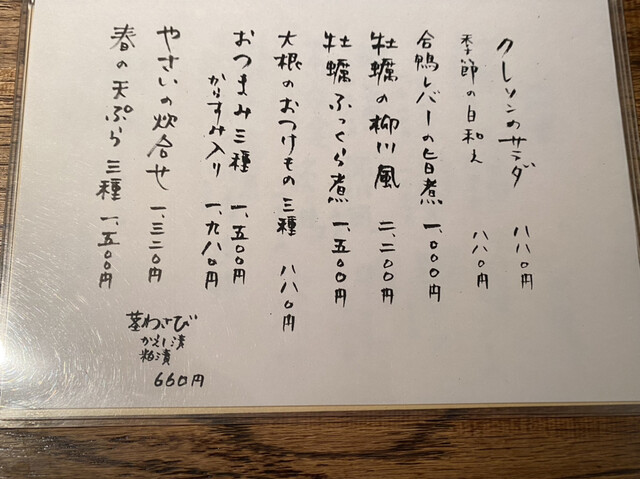 クレソンのサラダ 八八〇円
季節の白和え 八八〇円
合鴨レバーの旨煮 一、〇〇〇円
牡蠣の柳川風 二、二〇〇円
牡蠣ふっくら煮 一、五〇〇円
大根のおつけもの三種 八八〇円
おつまみ三種 一、五〇〇円
からすみ入り 一、九八〇円
やさいの炊合せ 一、三二〇円
春の天ぷら三種 一、五〇〇円
茎わさび
かえし漬
粕漬
660円